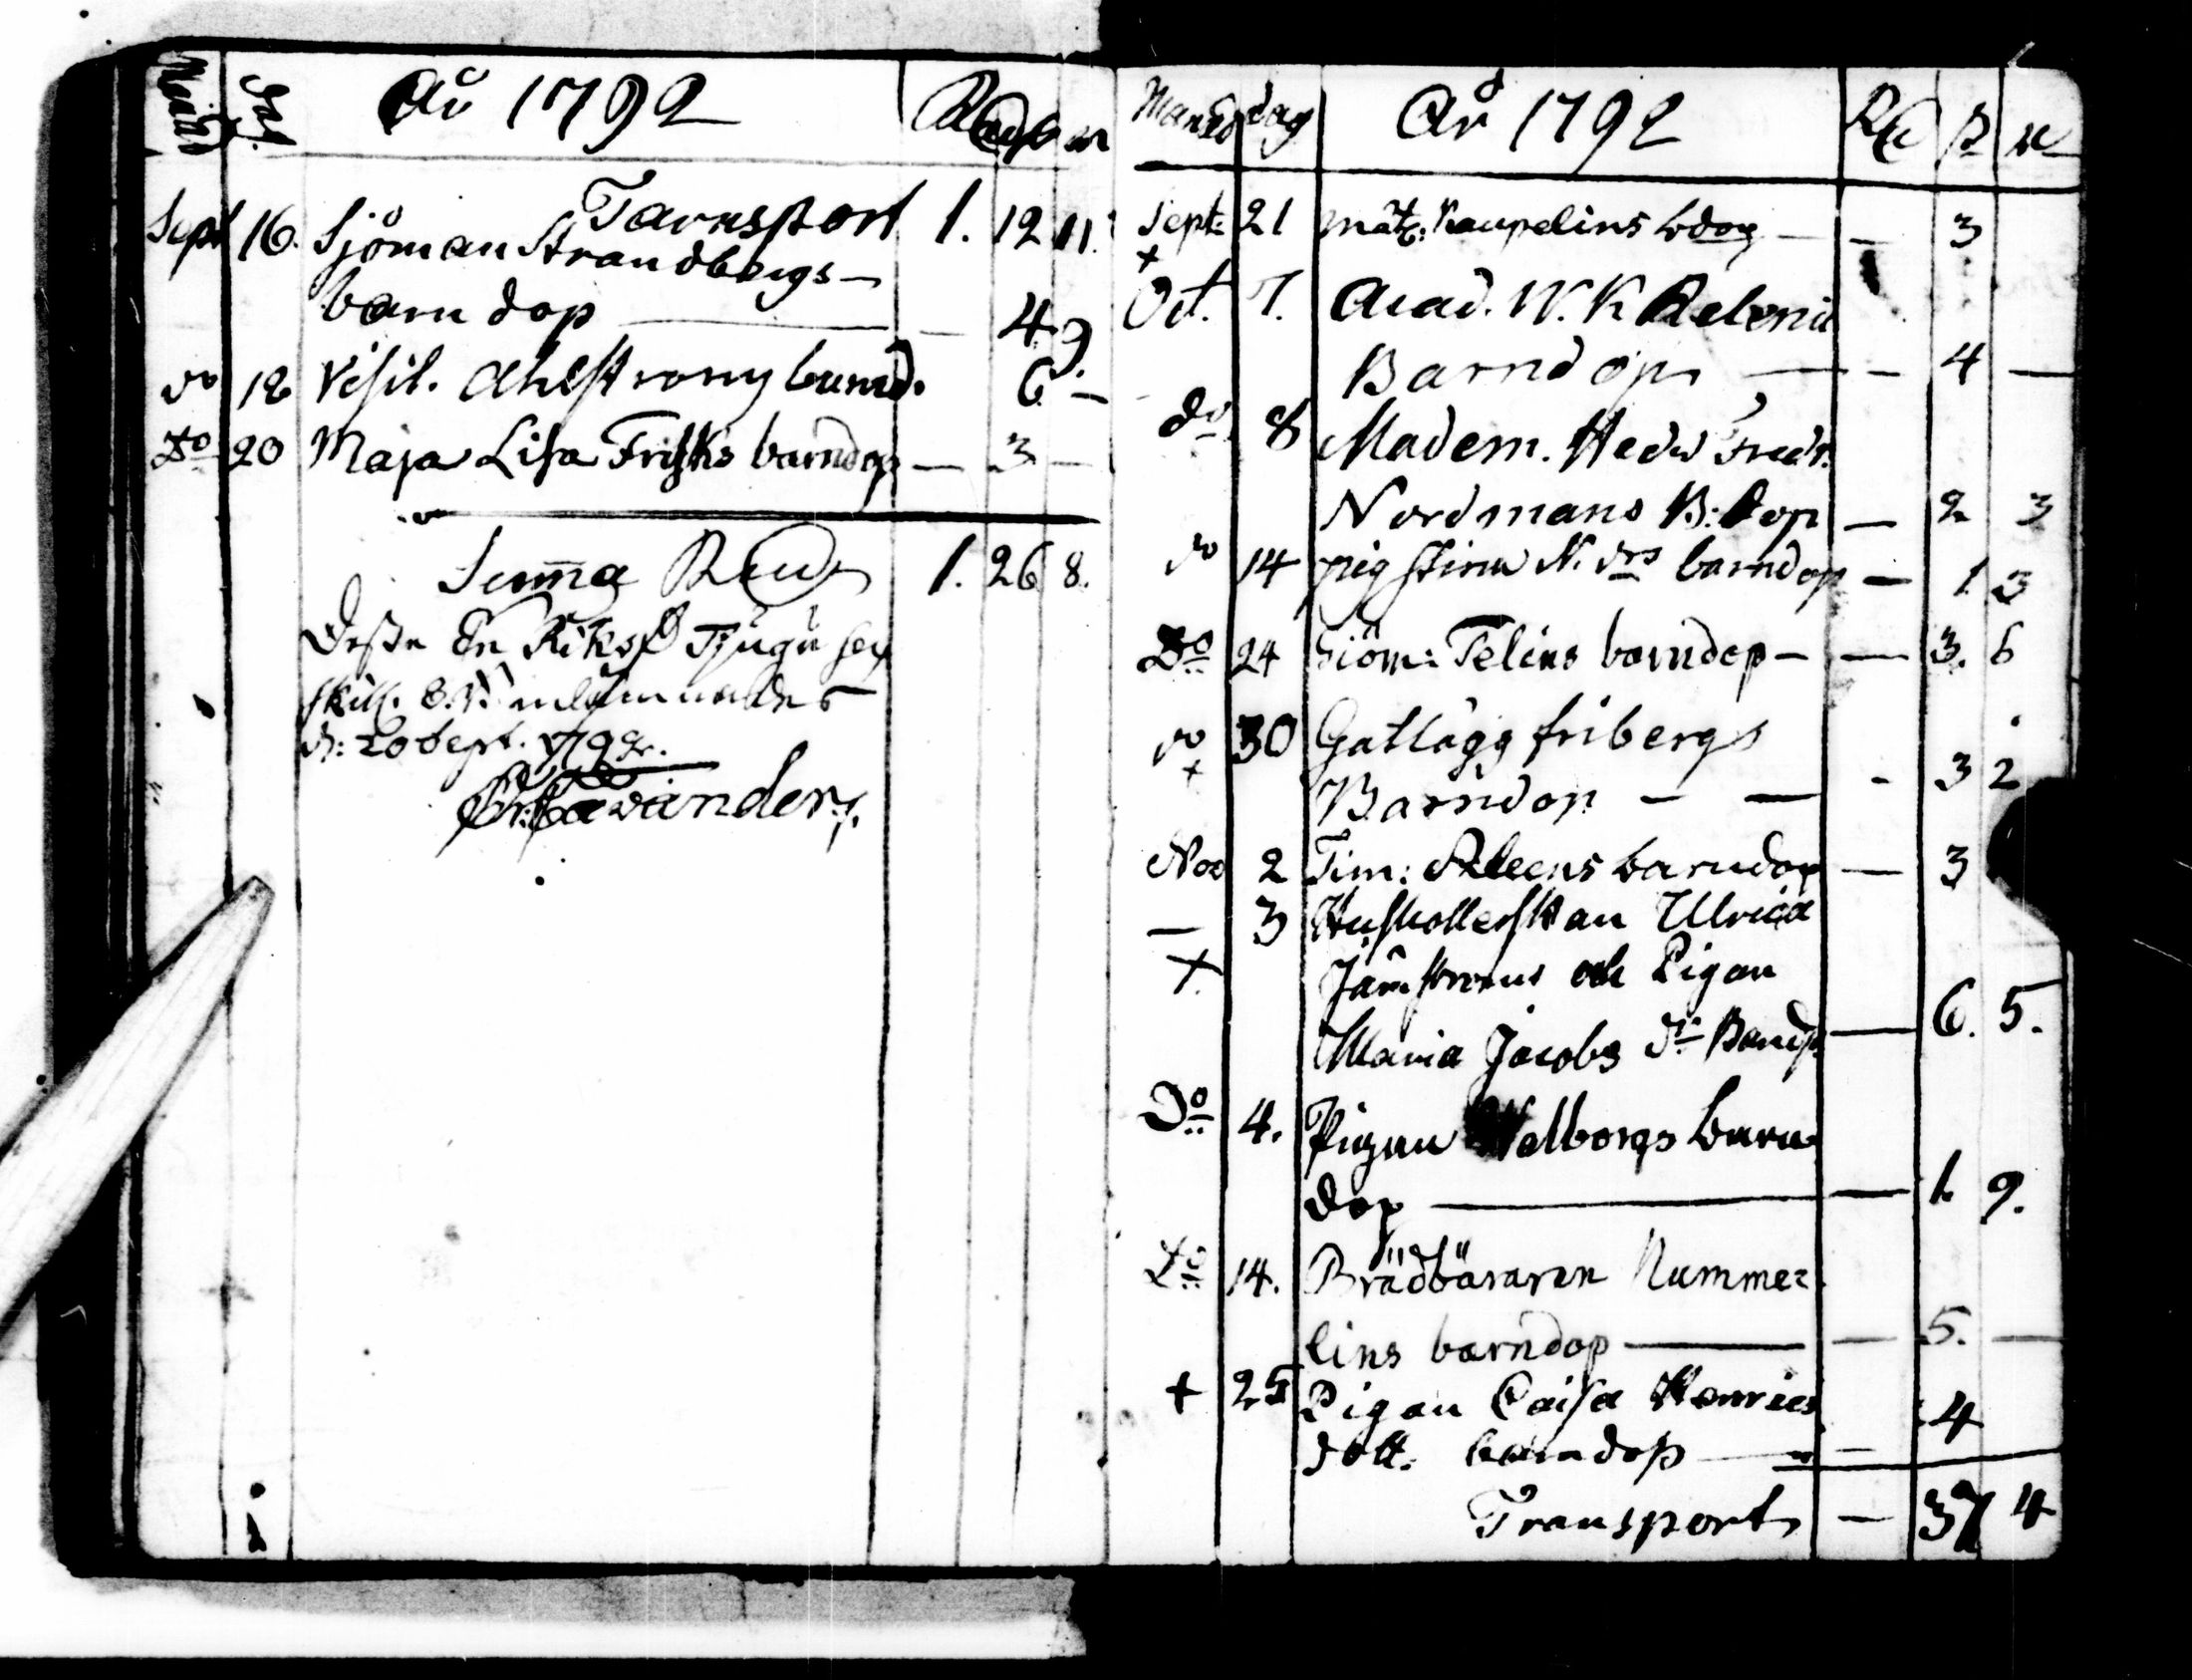 Månad Dag. År 1792 Rd ß rst
Tarnsport 1. 12 11.
Sept 16. Sjöman Strandbergs
barndop — 4. 9.
do 18 Visit. Ahlströms barnd. 6 —
Do 20 Maja Lisa Frisks barndop — 3 —
Suma Rd 1. 26 8.
Desse En Riksd Tjugu sex
skill. 8. r
d: 20 Sept. 1792.
Månad dag År 1792 Rd ß rst
Sept: 21 Kaupelins bdop — — 3
+
Oct. 7. Acad. W. K
Barndop — — 4 —
do 8 Madem. Hedv Fredr.
Nordmans B: dop — 2 3
do 14 pig Stina N. drs barndop — 1 3
Do 24 Siöm: Telins barndop — — 3. 6
do 30 Gatlägg fribergs
+ Barndop — — - 3 2
Nov 2 Tim: Aleens barndop — 3
— 3 Hushollerskan Ulrica
+ Jämströms och Pigan
Maria Jacobs dr Bandp — 6. 5.
Do 4. Pigan Walborgs barn
dop — — 1. 9.
Do 14. Brädbäraren Numme=
lins barndop — — 5. —
+ 25 Pigan Caisa Henrics
dott. barndop — — 4
Transport — 37 4